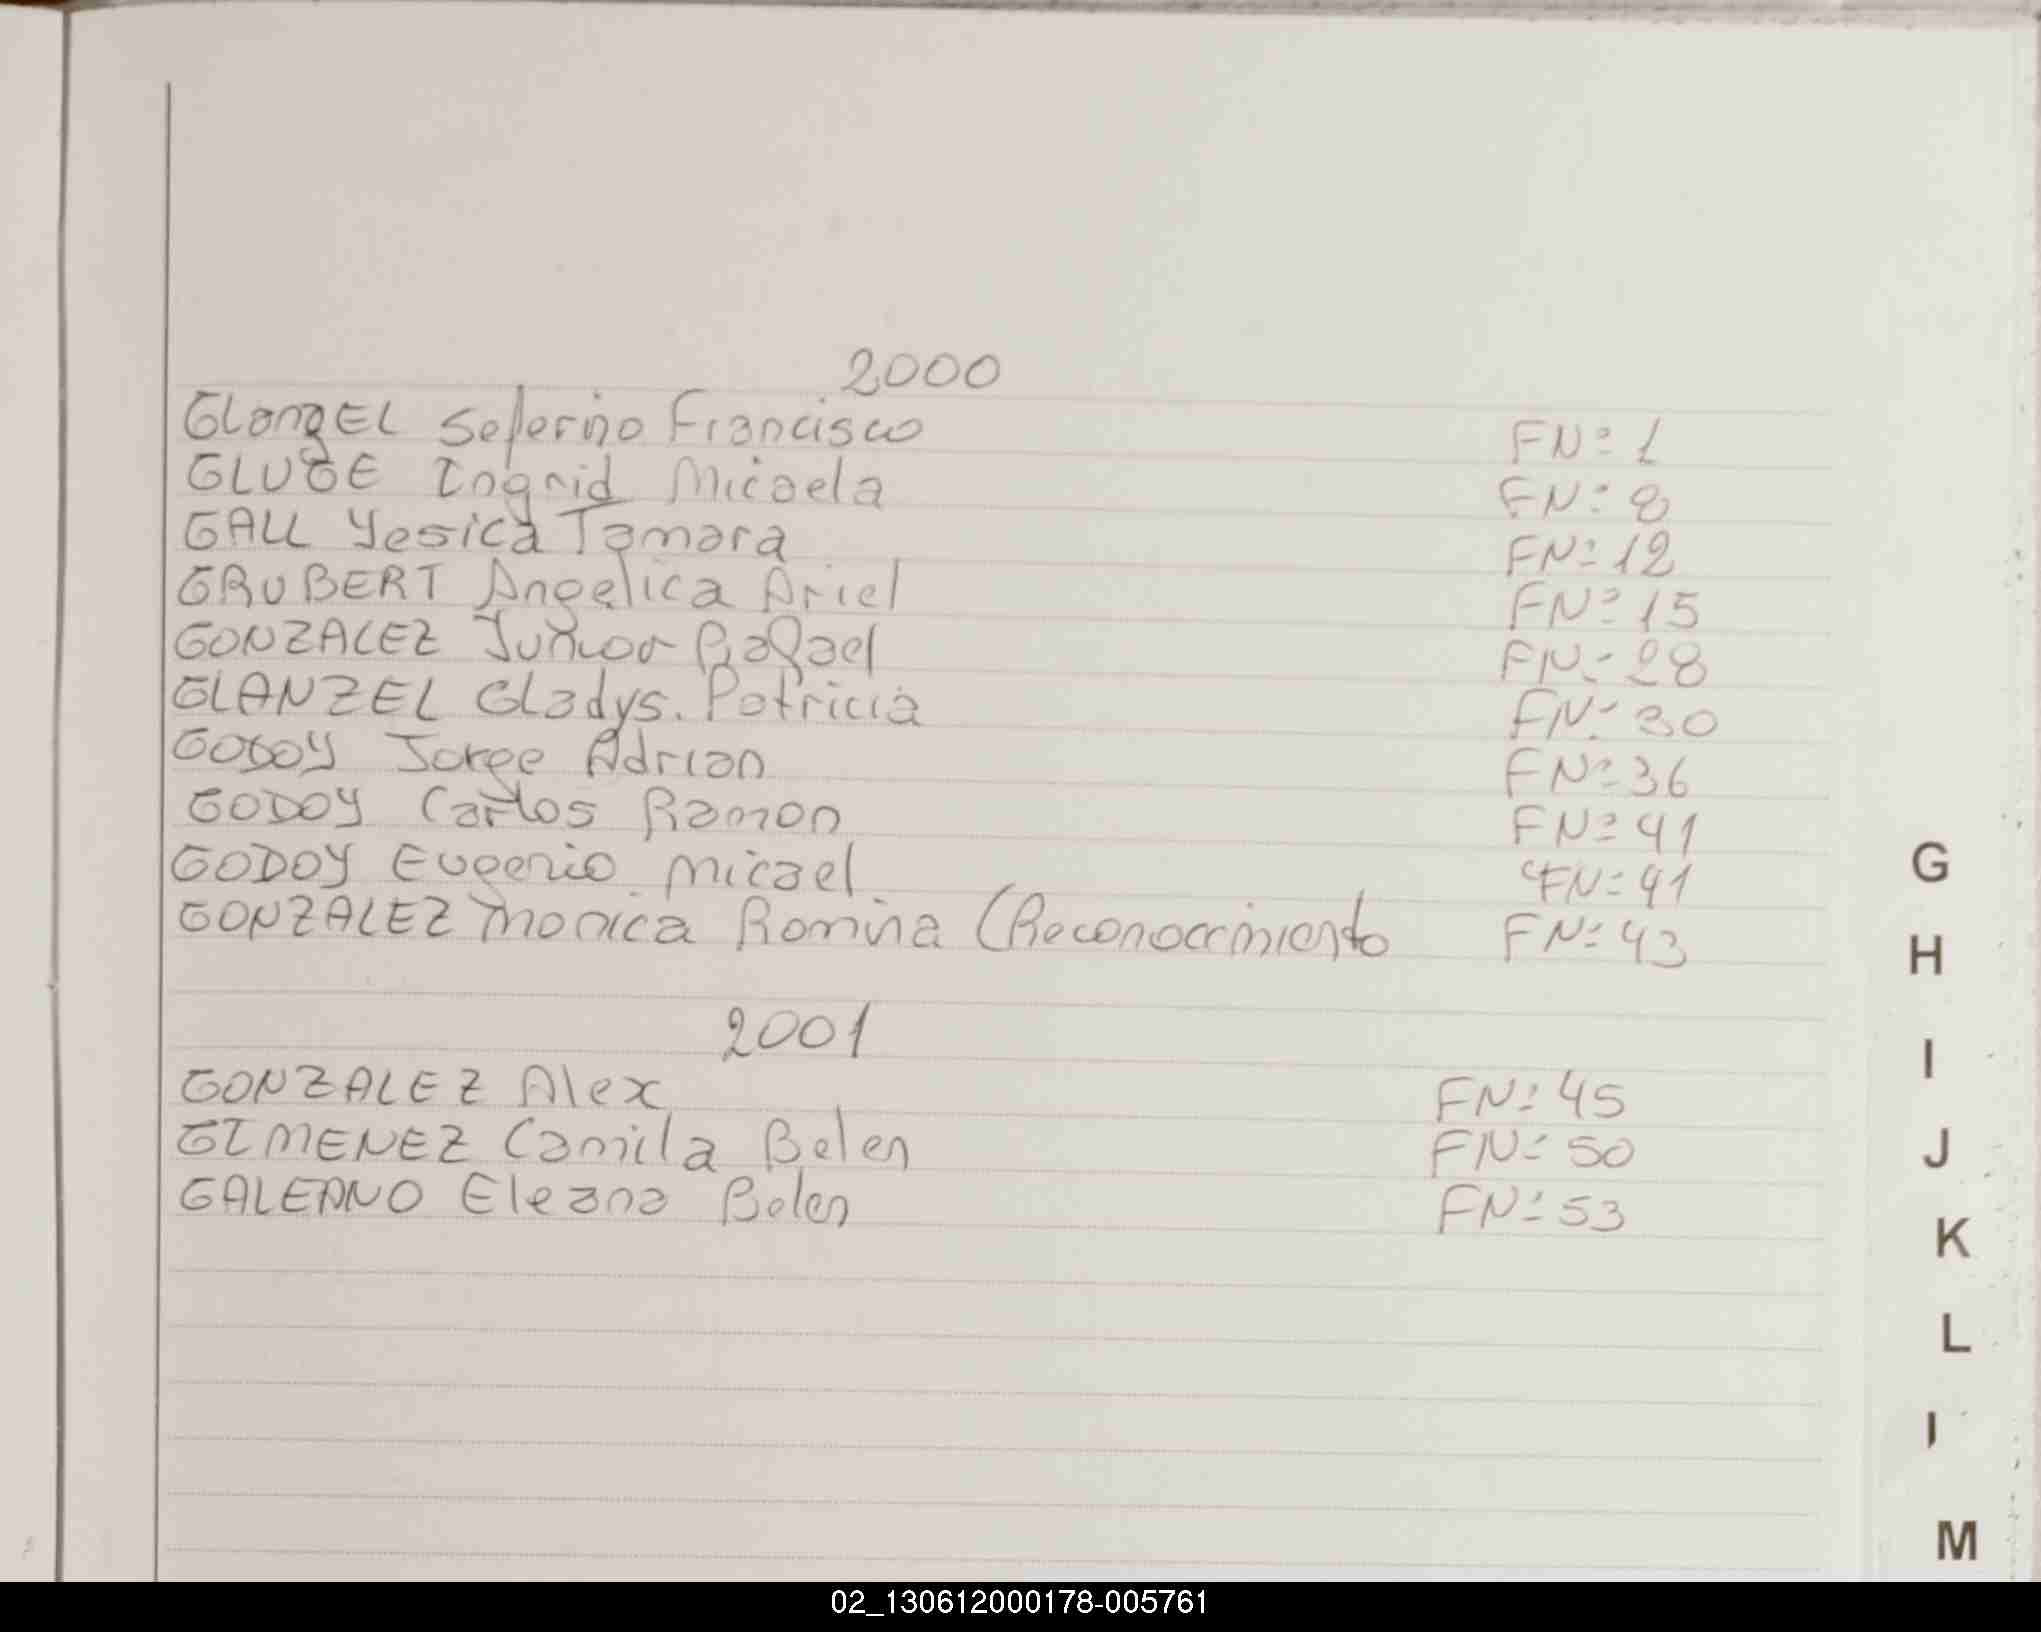 2000
GLanzEL Seferino Francisco FNº 1
GLUGE Ingrid Micaela FNº 8
GALL Yesica Tamara FNº 12
GRUBERT Angelica Ariel FNº 15
GONZALEZ Junior Rafael FNº 28
GLANZEL Gladys. Patricia FNº 30
GODOY Jorge Adrian FNº 36
GODOY Carlos Ramon FNº 41
GODOY Eugenio Micael FNº 41
GONZALEZ Monica Romina (Reconocimiento FNº 43
2001
GONZALEZ Alex FNº 45
GIMENEZ Camila Belen FNº 50
GALEANO Eleana Belen FNº 53
G
H
I
J
K
L
M
02_130612000178-005761